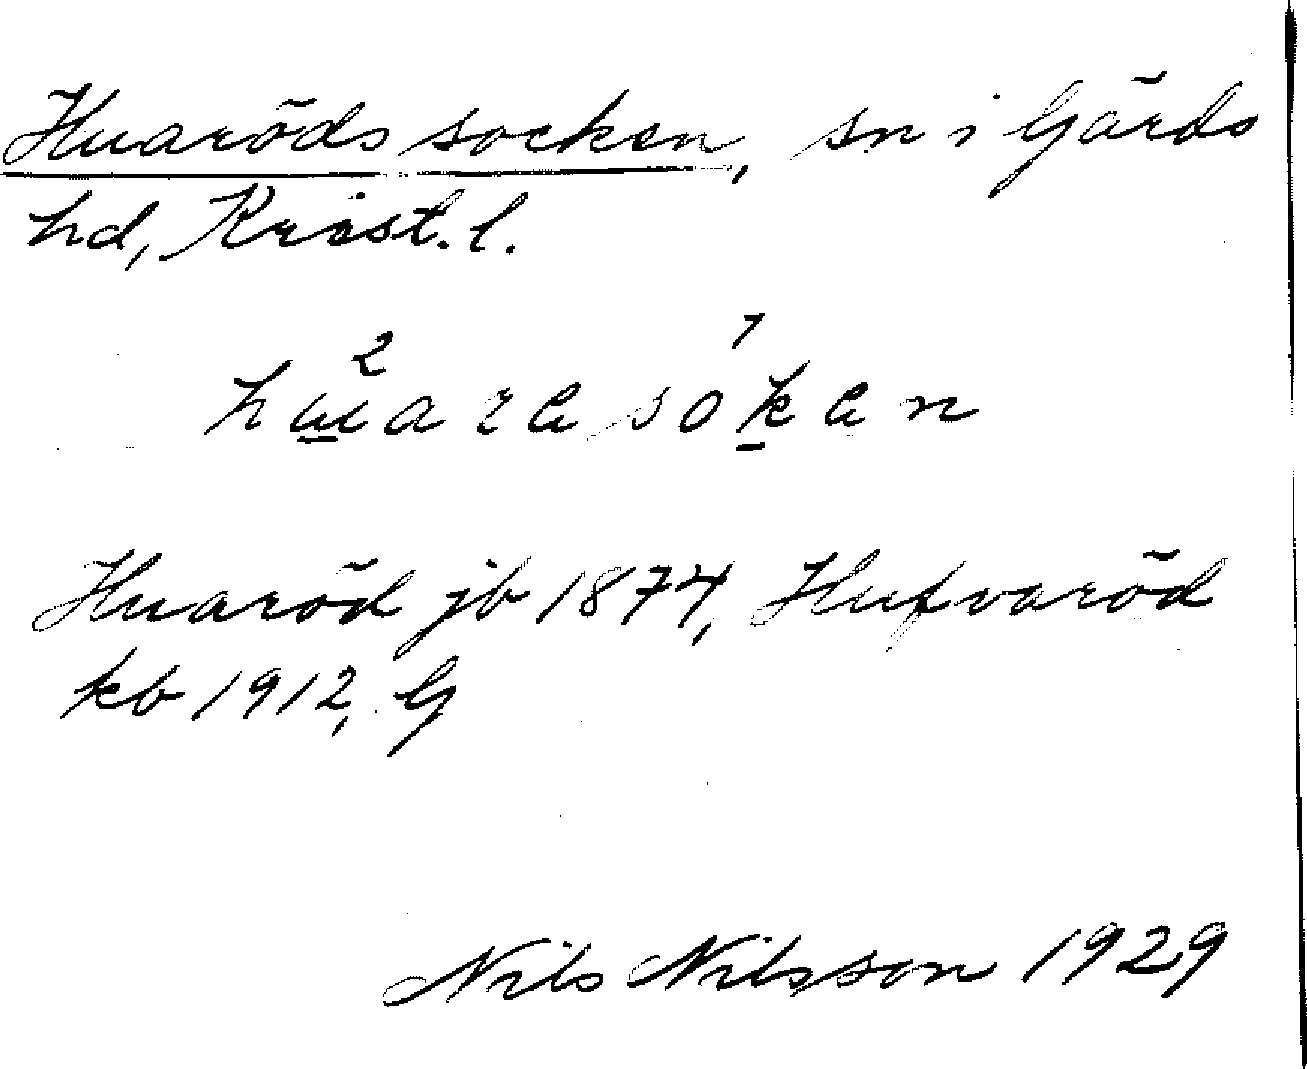 Huaröds socken, sn i Gärds
hd, Krist. l.
Huaröd jb 1874, Hufvaröd
kb 1912, G
Nils Nilsson 1929